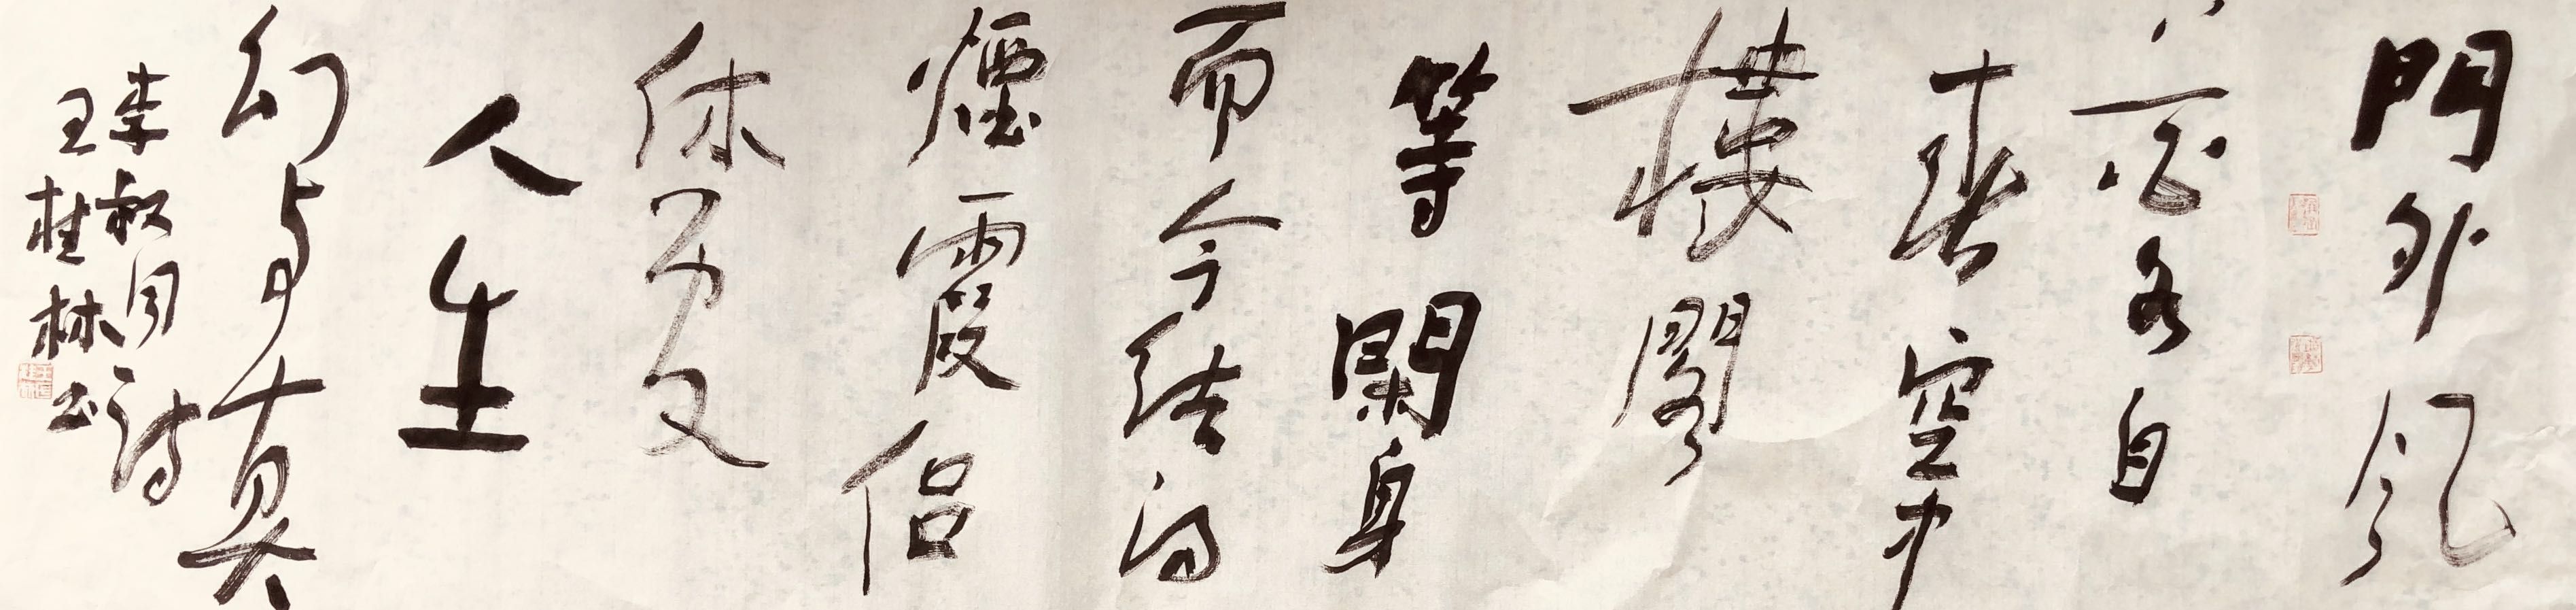 門外風
花各自
春空中
樓閣
等閑身
而今結得
煙霞侶
休
人生
幻與真
李叔同詩
王桂林书